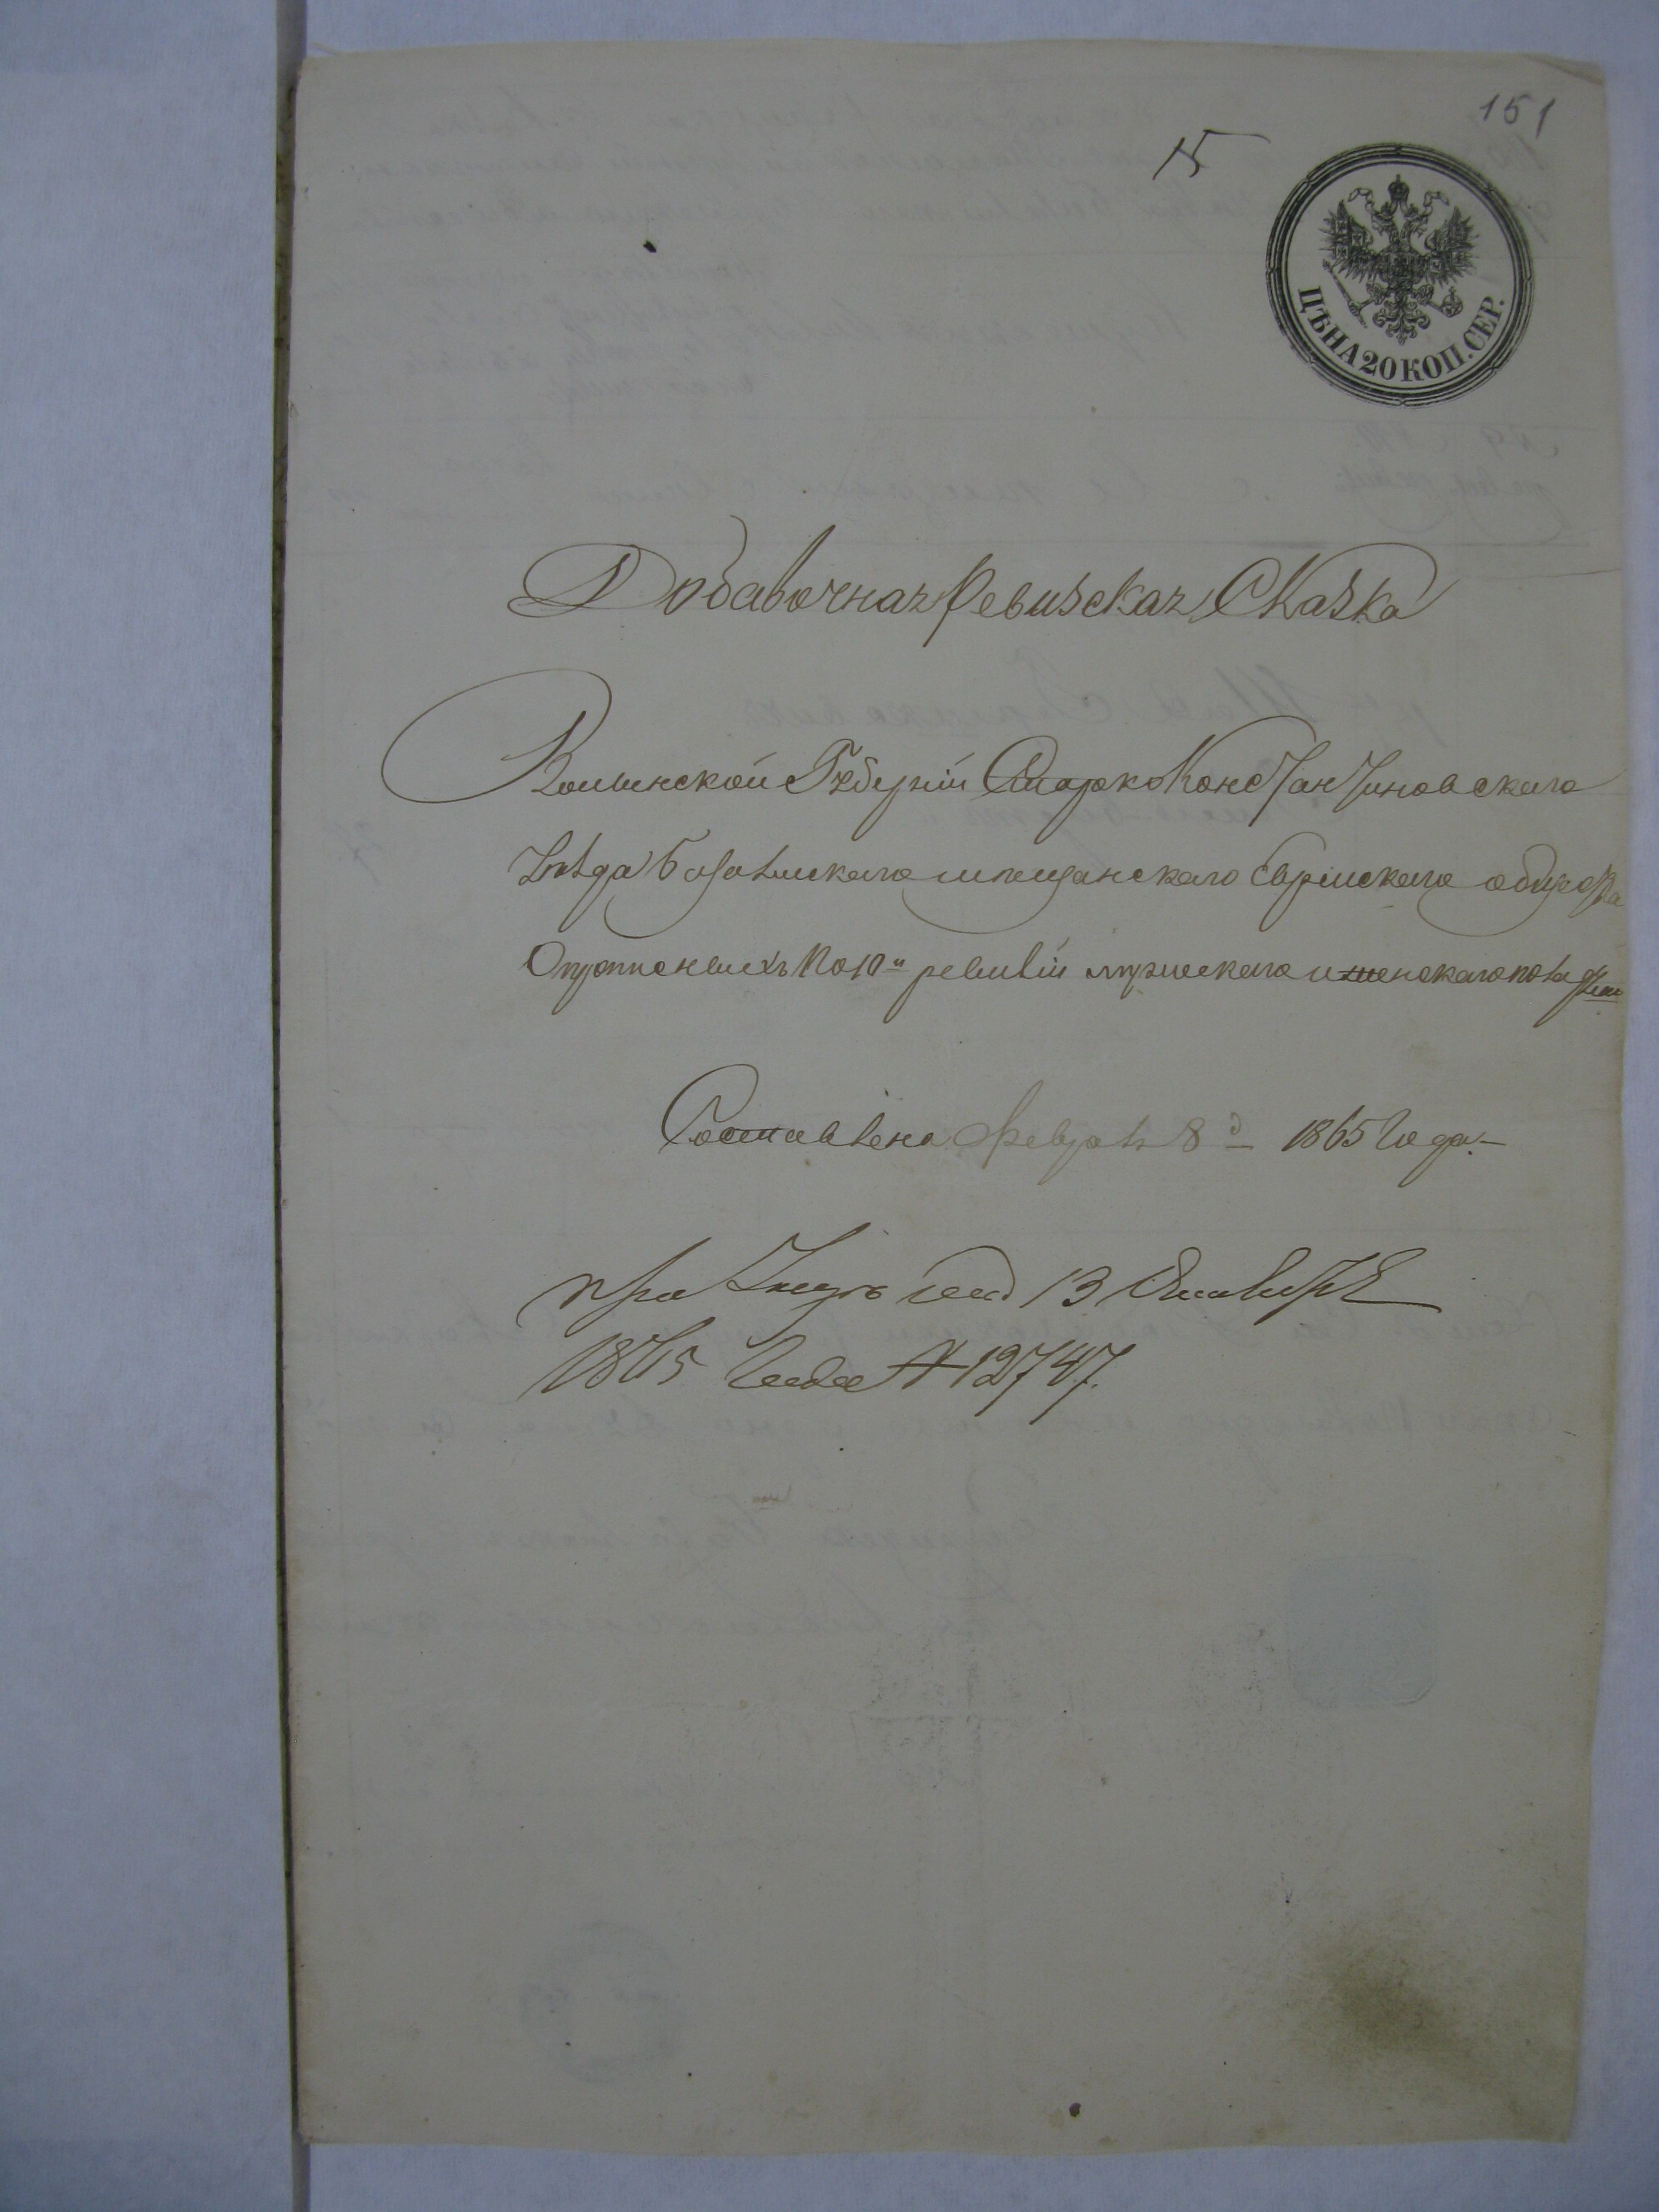 151
15
ЦѢНА 20 КОП. СЕР.
Добавочная Ревизская Сказка
Волынской Губерній Старо Константиновского
уѣзда Базалійскаго мѣщанскаго Еврейскаго общества
Опущенныхъ по 10й ревизіи мужескаго и женскаго пола
Составлена Февраля 8 д 1865 Года.
при Указѣ 13
1865 Года № 12747.